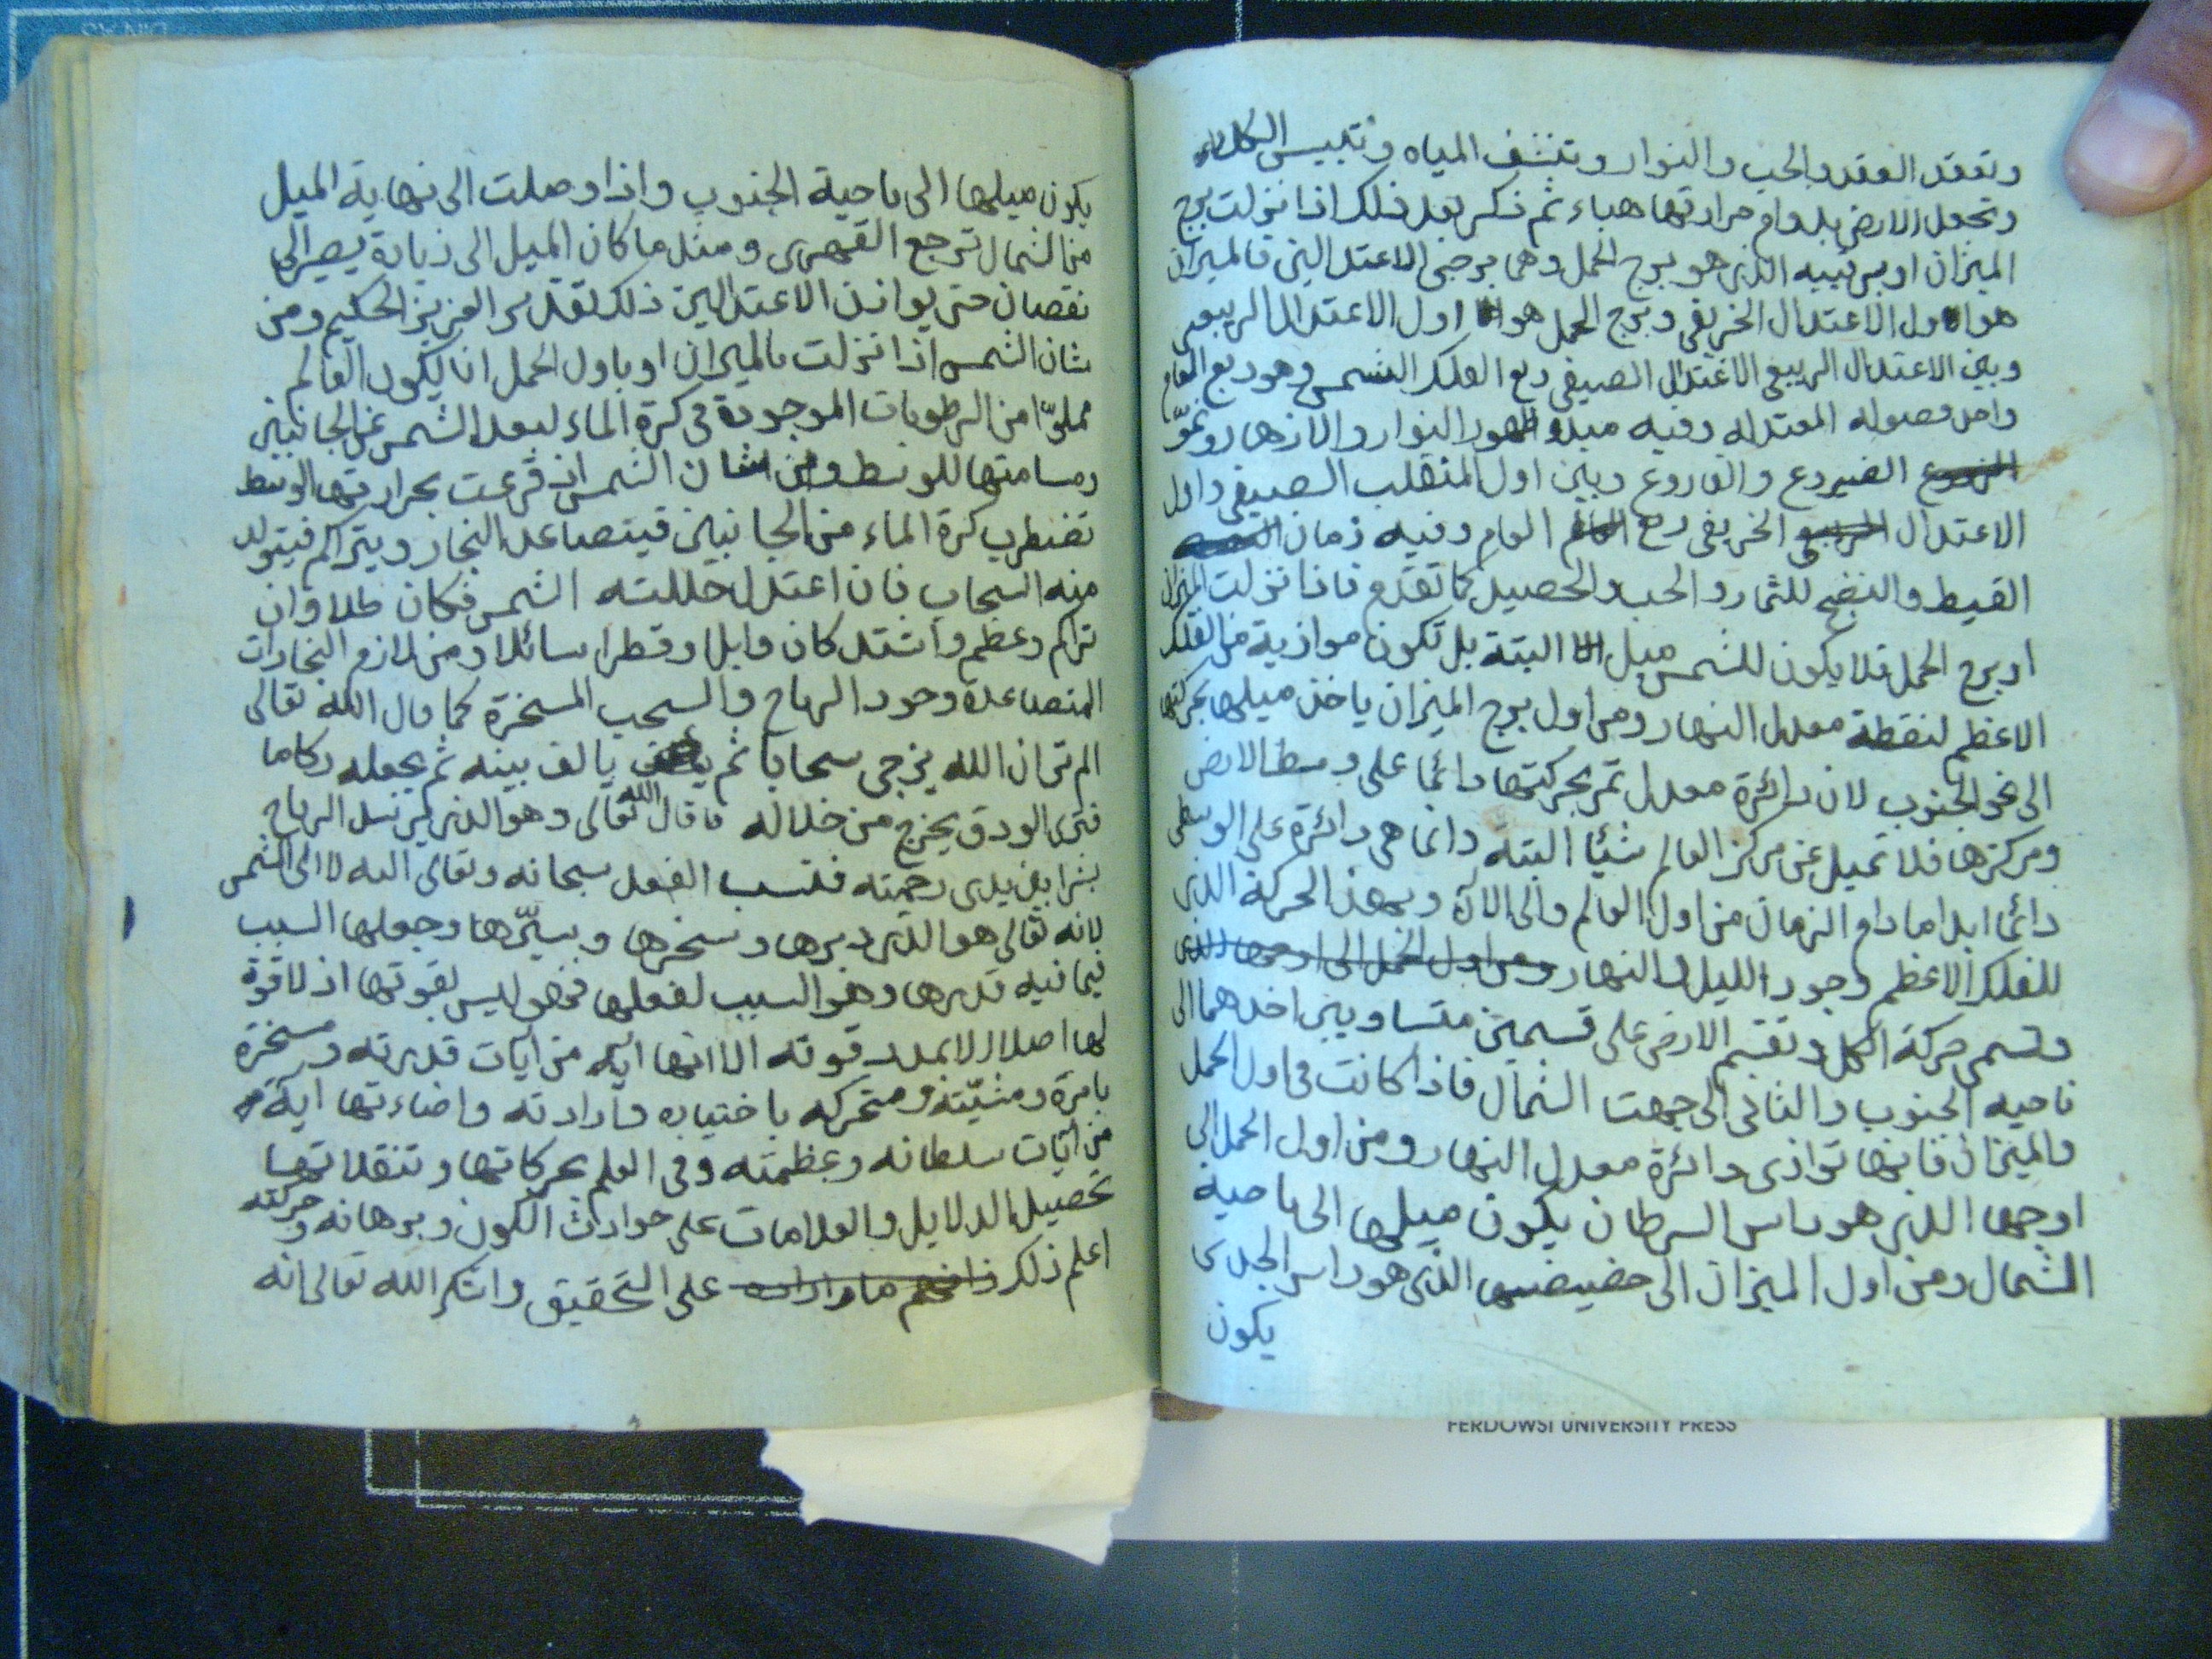 وتعقد العقد والحب والنوار وتنشف المياه وتيبيس الكلاء
وتجعل الارض بدوام حرارتها هباء ثم ذكر بعد ذلك اذا نزلت برج
الميزان او برج الذي هو برج الحمل وهما برجي الاعتدالين فالميزان
هو اول الاعتدال الخريفي وبرج الحمل هو اول الاعتدال الربيعي
وبين الاعتدال الربيعي الاعتدال الصيفي ربع الفلك الشمس وهو ربع العام
واحد فصوله المعتدله وفيه مبدو ظهور النوار والازهار ونموّ
الضروع والفاروع وبين اول المنقلب الصيفي واول
الاعتدال الخريفي ربع العام وفيه زمان
القيط والنضج للثمار والحب والحصيل كما تقدم فاذا نزلت الميزان
او برج الحمل فلا يكون للشمس ميل البتة بل تكون موازية من الفلك
الاعظم لنقطة معدل النهار ومن اول برج الميزان ياخذ ميلها بحركتها
الى نحو الجنوب لان دائرة معدل تمر بحركتها دائما على وسط الارض
ومركزها فلا تميل عن مركز العالم شيئا البتة دائما هي دائرة على الوسطى
دائما ابدا ما دام الزمان من اول العالم والى الآن وبهذا الحركة الذي
للفلك الاعظم وجود الليل والنهار ومن اول الحمل الى اوجها الذي
وتسمى حركة الكل وتقسم الارض على قسمين متساويين احدهما الى
ناحيه الجنوب والثاني الى جهت الشمال فاذا كانت في اول الحمل
والميزان فانها توازى دائرة معدل النهار ومن اول الحمل الى
اوجها الذي هو راس السرطان يكون ميلها الى ناحية
الشمال ومن اول الميزان الى حضيضها الذي هو راس الجدى
يكون
يكون ميلها الى ناحية الجنوب واذا وصلت الى نهاية الميل
من الشمال ترجع القهقرى ومثل ما كان الميل الى زيادة يصير الى
نقصان حتى يوازن الاعتدالين ذلك تقدير العزيز الحكيم ومن
شان الشمس اذا نزلت بالميزان او باول الحمل ان يكون العالم
مملوّا من الرطوبات الموجودة في كرة الماء لبعد الشمس عن الجانبين
ومسامتها للوسط ومن شان الشمس اذ قرعت بحرارتها الوسط
تضطرب كرة الماء من الجانبين فيتصاعد البخار ويتراكم فيتولد
منه السحاب فان اعتدل حللته الشمس فكان طلا وان
تراكم وعظم واشتد كان وابلا وقطرا سائلا ومن لازم البخارات
المتصاعدة وجود الرياح والسحب المسخرة كما قال الله تعالى
الم تر ان الله يزجي سحابا ثم يالف بينه ثم يجعله ركاما
فترى الودق يخرج من خلاله قال الله تعالى وهو الذي يرسل الرياح
بشرا بين يدى رحمته فنسب الفعل سبحانه وتعالى اليه لا الى الشمس
لانه تعالى هو الذي دبرها وسخرها وسيّرها وجعلها السبب
فيما فيه قدرها وهو السبب لفعلها فهو ليس بقوتها اذ لا قوة
لها اصلا الا بمدد قوته الا انها آية من آيات قدرته ومسخرة
بامرة ومشيّته ومتحركه باختياره وارادته واضاءتها اية
من آيات سلطانه وعظمته وفي العلم بحركاتها وتنقلاتها
تحصيل الدلايل والعلامات على حوادث الكون وبرهانه وحركته
اعلم ذلك وافهم ما اراده على التحقيق واشكر الله تعالى انه
FERDOWSI UNIVERSITY PRESS